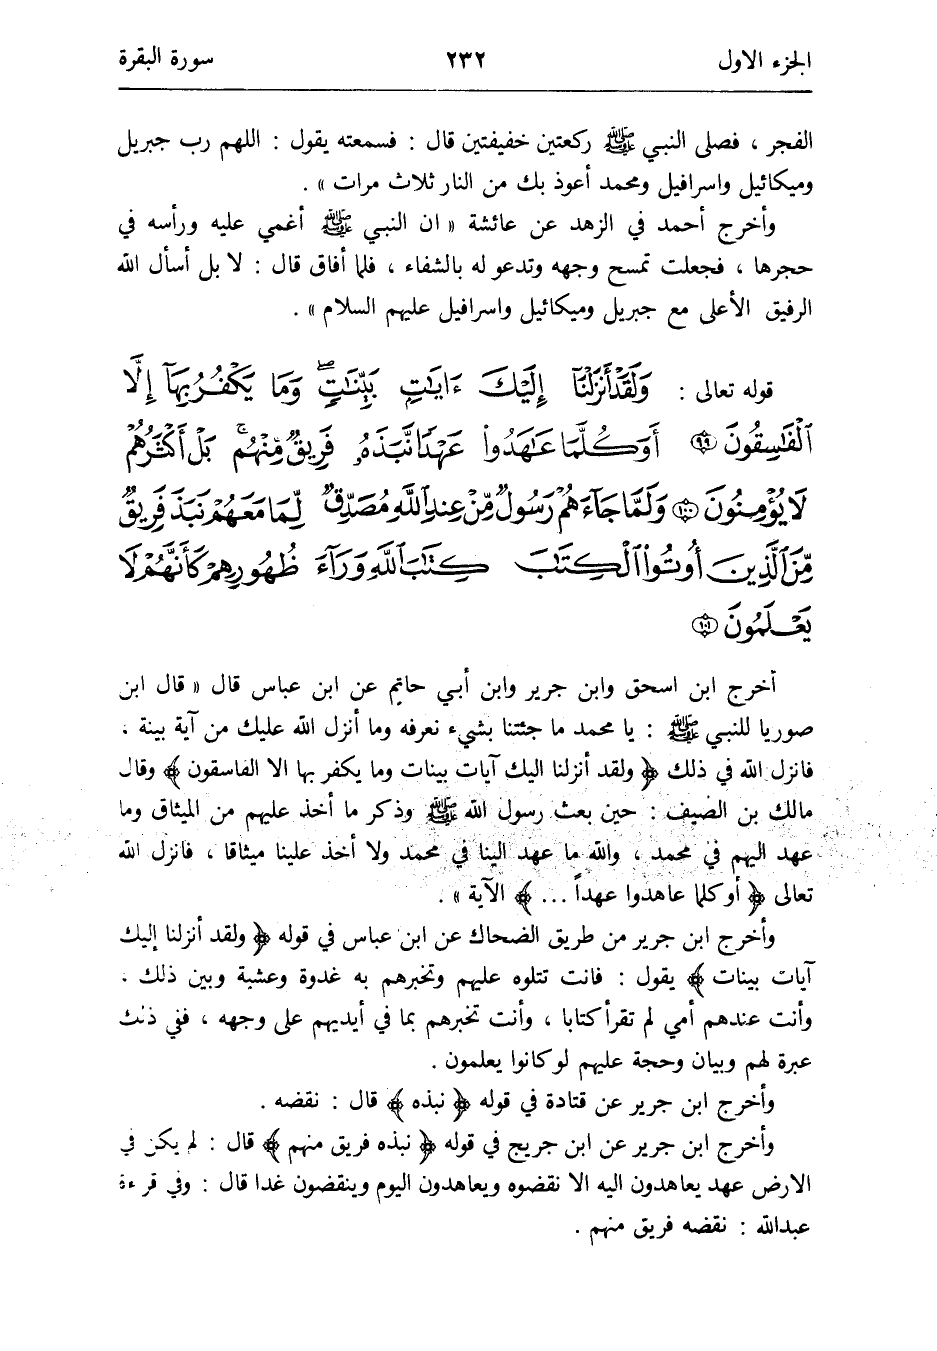 الجزء الاول ٢٣٢ سورة البقرة
الفجر ، فصلى النبي ﷺ ركعتين خفيفتين قال : فسمعته يقول : اللهم رب جبريل
وميكائيل واسرافيل ومحمد أعوذ بك من النار ثلاث مرات » .
وأخرج أحمد في الزهد عن عائشة « ان النبي ﷺ أغمي عليه ورأسه في
حجرها ، فجعلت تمسح وجهه وتدعو له بالشفاء ، فلما أفاق قال : لا بل أسأل الله
الرفيق الأعلى مع جبريل وميكائيل واسرافيل عليهم السلام » .
قوله تعالى : وَلَقَدْ أَنزَلْنَآ إِلَيْكَ ءَايَٰتٍۭ بَيِّنَٰتٍۖ وَمَا يَكْفُرُ بِهَآ إِلَّا
ٱلْفَٰسِقُونَ ۝٩٩ أَوَكُلَّمَا عَٰهَدُوا۟ عَهْدًا نَّبَذَهُۥ فَرِيقٌ مِّنْهُمۚ بَلْ أَكْثَرُهُمْ
لَا يُؤْمِنُونَ ۝١٠٠ وَلَمَّا جَآءَهُمْ رَسُولٌ مِّنْ عِندِ ٱللَّهِ مُصَدِّقٌ لِّمَا مَعَهُمْ نَبَذَ فَرِيقٌ
مِّنَ ٱلَّذِينَ أُوتُوا۟ ٱلْكِتَٰبَ كِتَٰبَ ٱللَّهِ وَرَآءَ ظُهُورِهِمْ كَأَنَّهُمْ لَا
يَعْلَمُونَ ۝١٠١
أخرج ابن اسحق وابن جرير وابن أبي حاتم عن ابن عباس قال « قال ابن
صوريا للنبي ﷺ : يا محمد ما جئتنا بشيء نعرفه وما أنزل الله عليك من آية بينة ،
فانزل الله في ذلك ﴿ ولقد أنزلنا اليك آيات بينات وما يكفر بها الا الفاسقون ﴾ وقال
مالك بن الضيف : حين بعث رسول الله ﷺ وذكر ما أخذ عليهم من الميثاق وما
عهد اليهم في محمد ، والله ما عهد الينا في محمد ولا أخذ علينا ميثاقا ، فانزل الله
تعالى ﴿ أوكلما عاهدوا عهداً ... ﴾ الآية » .
وأخرج ابن جرير من طريق الضحاك عن ابن عباس في قوله ﴿ ولقد أنزلنا إليك
آيات بينات ﴾ يقول : فانت تتلوه عليهم وتخبرهم به غدوة وعشية وبين ذلك ،
وأنت عندهم أمي لم تقرأ كتابا ، وأنت تخبرهم بما في أيديهم على وجهه ، ففي ذلك
عبرة لهم وبيان وحجة عليهم لو كانوا يعلمون .
وأخرج ابن جرير عن قتادة في قوله ﴿ نبذه ﴾ قال : نقضه .
وأخرج ابن جرير عن ابن جريج في قوله ﴿ نبذه فريق منهم ﴾ قال : لم يكن في
الارض عهد يعاهدون اليه الا نقضوه ويعاهدون اليوم وينقضون غدا قال : وفي قراءة
عبدالله : نقضه فريق منهم .